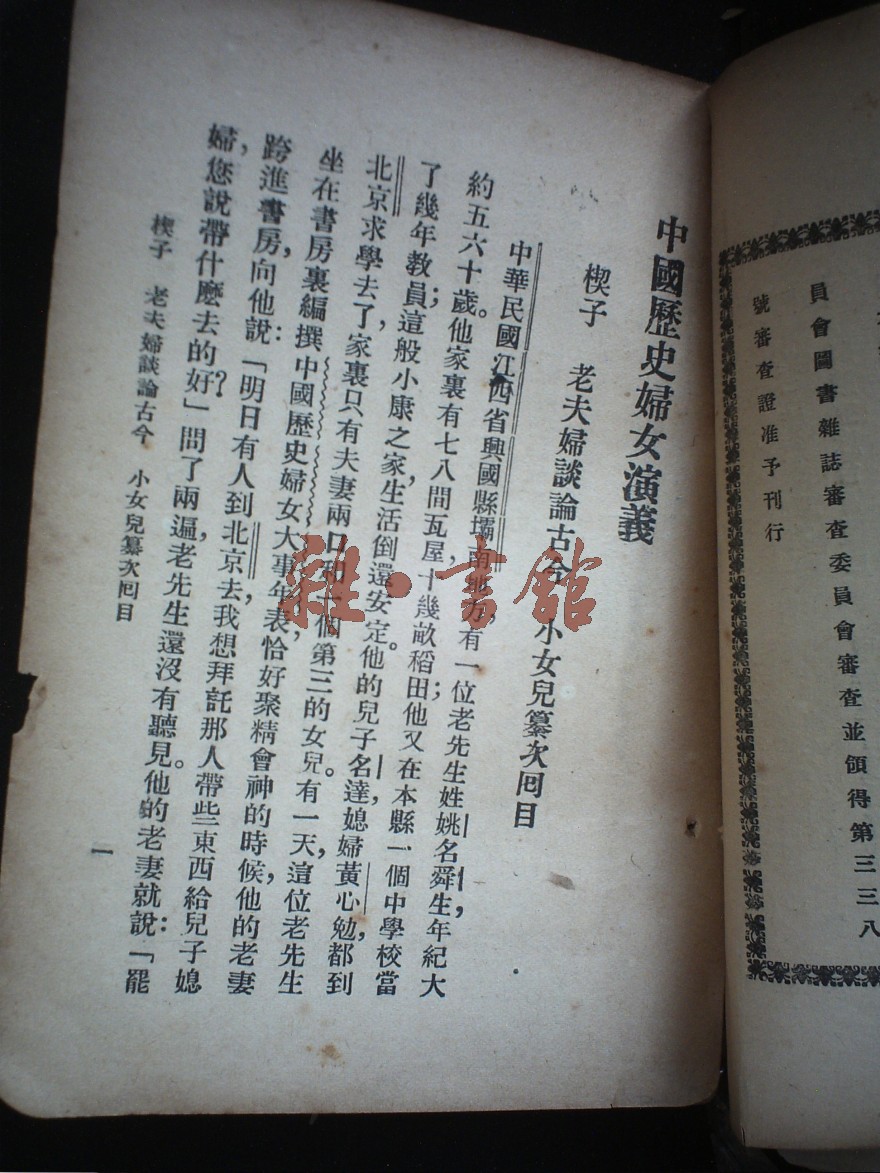 員會圖書雜誌審查委員會審查並領得第三三八
號審查證准予刊行
中國歷史婦女演義
楔子　老夫婦談論古今　小女兒纂次囘目
中華民國江西省興國縣壩南地方有一位老先生姓姚名舜生年紀大
約五六十歲。他家裏有七八間瓦屋，十幾畝稻田；他又在本縣一個中學校當
了幾年教員；這般小康之家，生活倒還安定。他的兒子名達，媳婦黃心勉，都到
北京求學去了家裏只有夫妻兩口和一個第三的女兒。有一天，這位老先生
坐在書房裏編撰中國歷史婦女大事年表，恰好聚精會神的時候他的老妻
跨進書房，向他說：「明日有人到北京去，我想拜託那人帶些東西給兒子媳
婦，您說帶什麼去的好？」問了兩遍，老先生還沒有聽見。他的老妻就說：「罷
楔子　老夫婦談論古今　小女兒纂次囘目
一
雜·書館